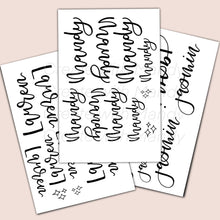 Lauren
Lauren
Lauren
Lauren
Mandy
Mandy
Mandy
Mandy
Mandy
Mandy
Mandy
Mandy
Mandy
Jasmin
Jasmin
Jasmin